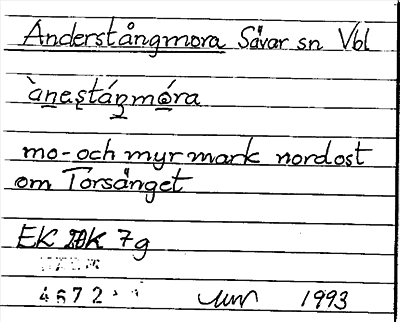 Anderstångmora Sävar sn Vbl
ànestáŋmóra
mo- och myrmark nordost
om Torsänget
EK 7g
4672
1993